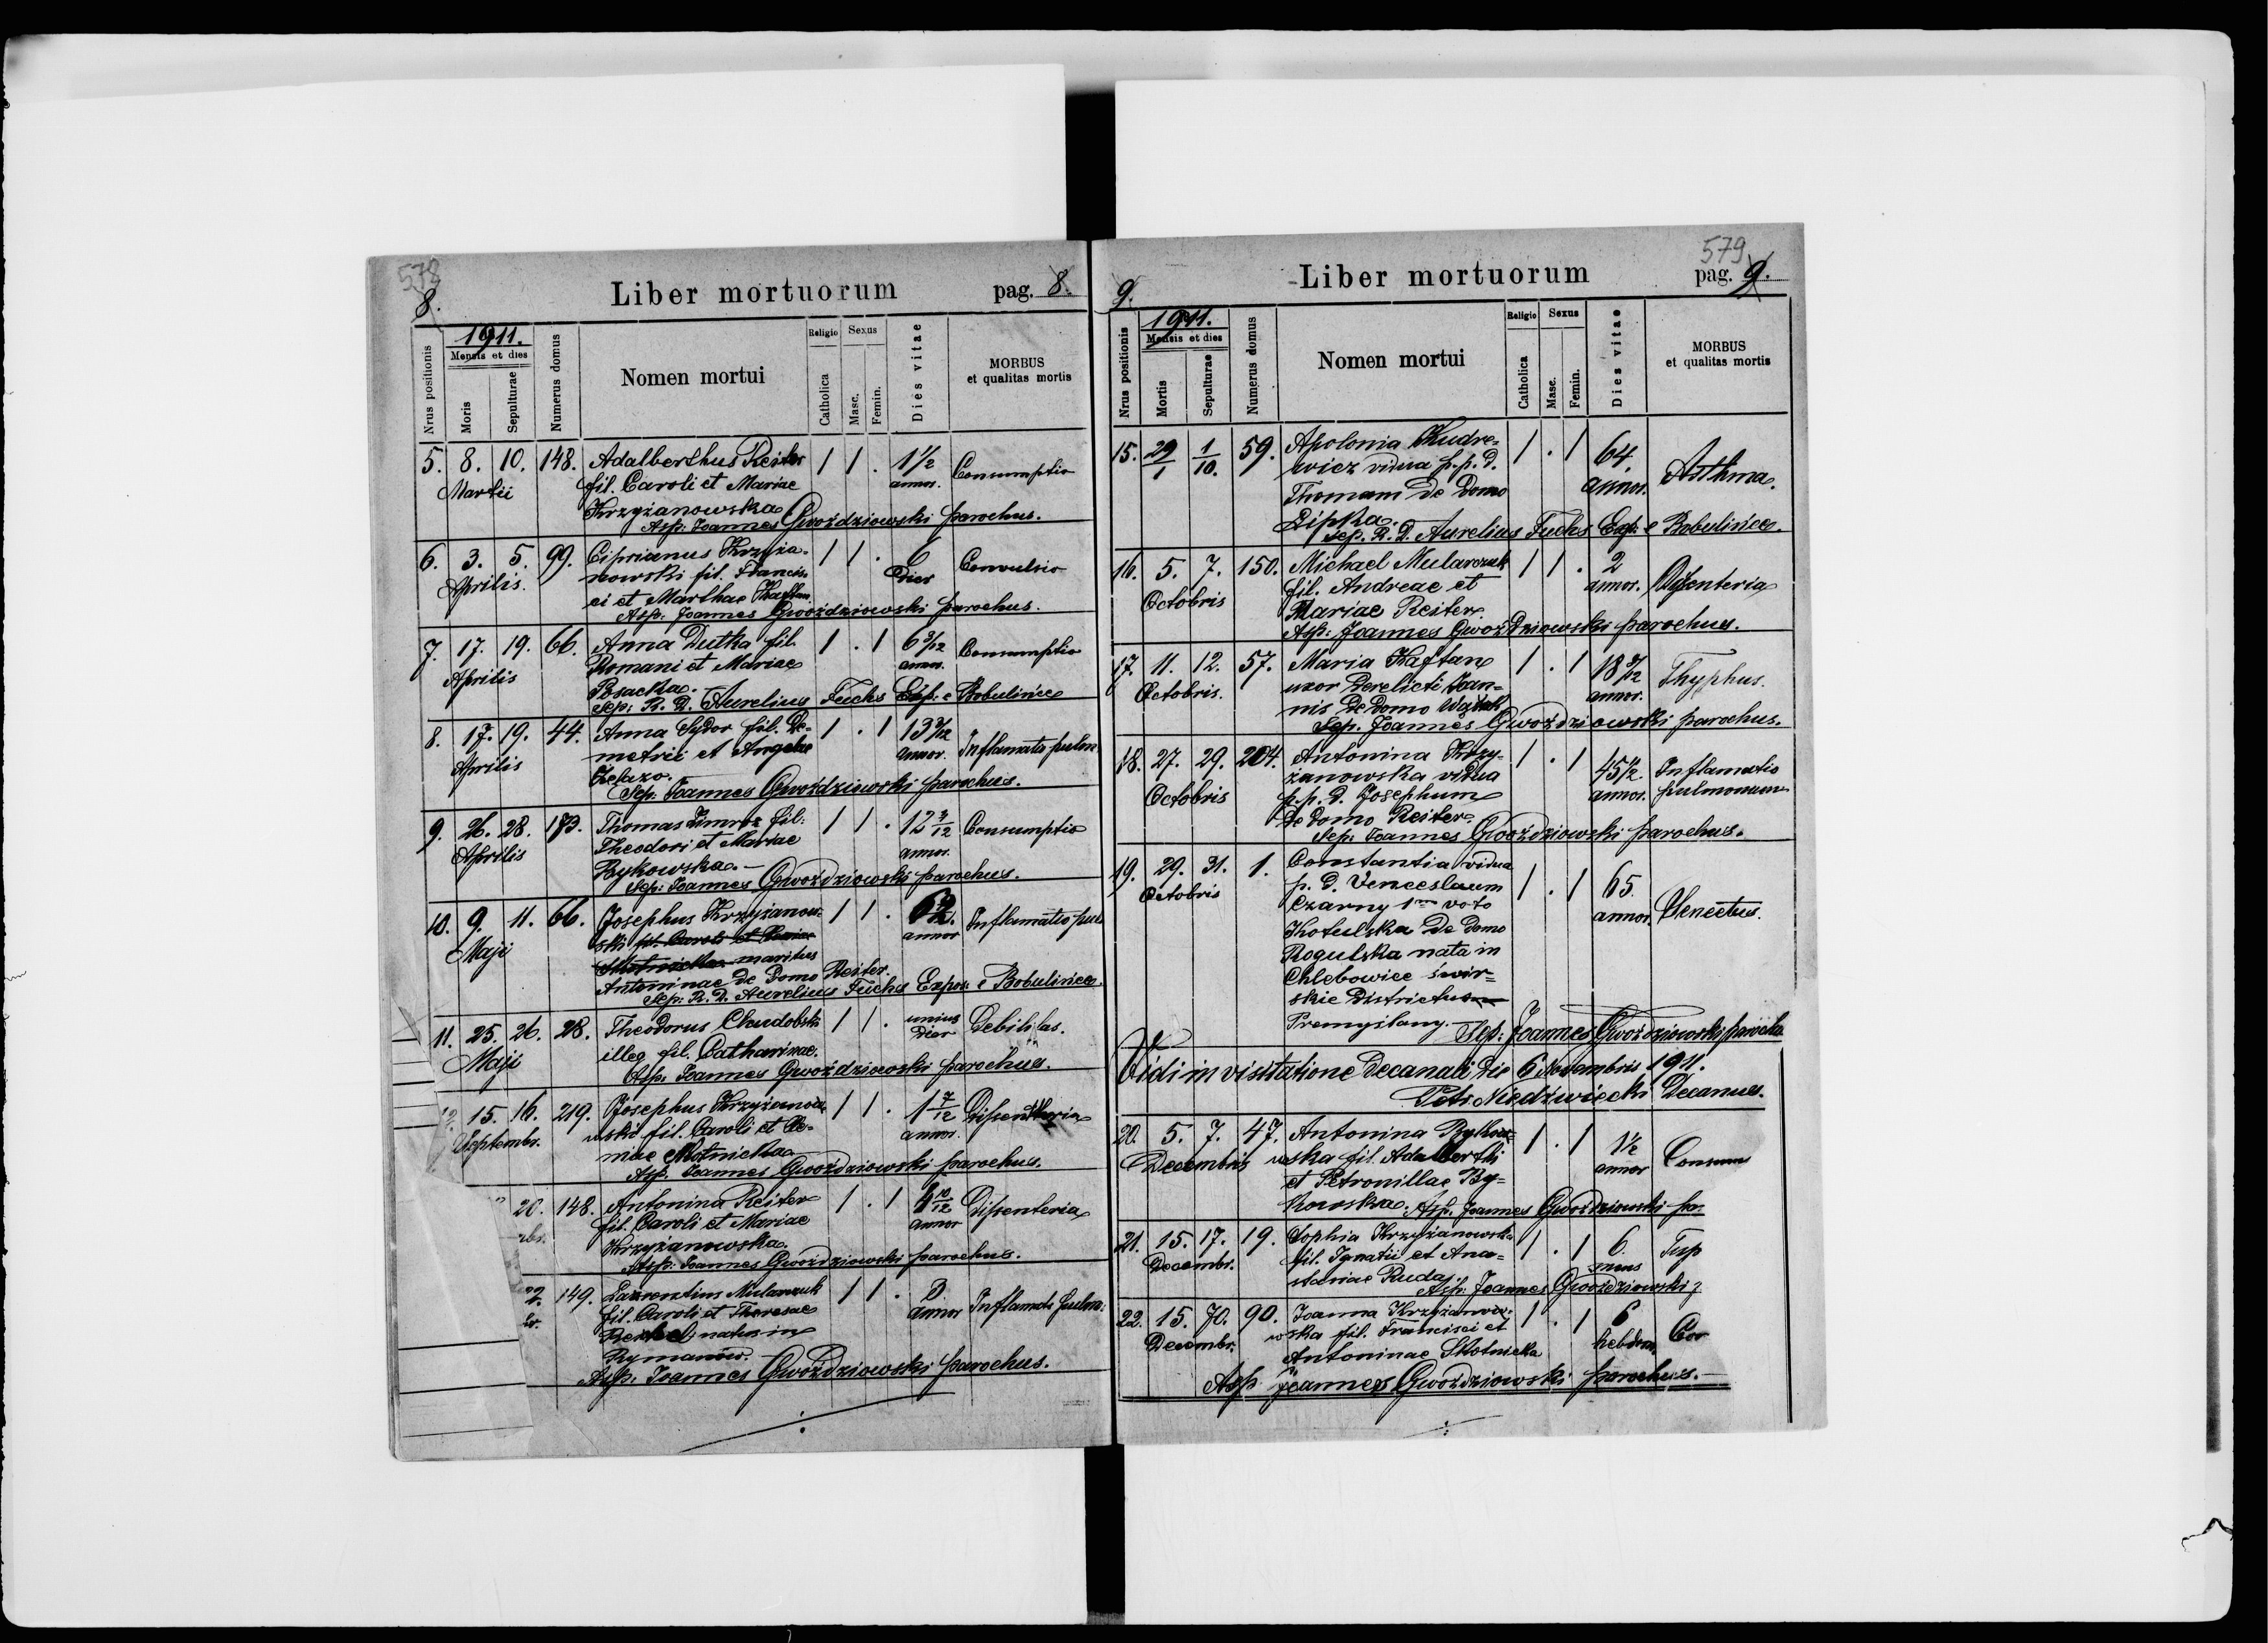 578
8.
Liber mortuorum pag. 8.
Nrus positionis
1911.
Mensis et dies
Moris
Sepulturae
Numerus domus
Nomen mortui
Religio
Catholica
Sexus
Masc.
Femin.
Dies vitae
MORBUS
et qualitas mortis
5. 8. 10. 148. Adalberthus Reiter 1 1 . 1 1/2 Consumptio
Martii fil. Caroli et Mariae annor.
Krzyżanowska
Asp: Joannes Gwoździowski parochus.
6. 3. 5. 99. Ciprianus Krzyża- 1 1 . 6 Convulsio
Aprilis. nowski fil. Francis- dies
ci et Marthae Kaftan
Asp: Joannes Gwoździowski parochus.
7. 17. 19. 66. Anna Dutka fil. 1 . 1 6 3/12 Consumptio
Aprilis Romani et Mariae annor.
Posacka.
Sep: R. D. Aurelius Fuchs Exp: e Bobulińce
8. 17. 19. 44. Anna Sydor fil. De- 1 . 1 13 Inflamatio pulm.
Aprilis metrii et Angelae annor.
Żelazo.
Sep: Joannes Gwoździowski parochus.
9. 26. 28. 173. Thomas fil: 1 1 . 12 3/12 Consumptio
Aprilis Theodori et Mariae annor.
Bykowska. —
Sep: Joannes Gwoździowski parochus.
10. 9. 11. 66. Josephus Krzyżanow- 1 1 . Inflamatio pul
Maji ski fil. Caroli et annor
maritus
Antoninae de Domo Reiter.
Sep: R. D. Aurelius Fuchs Expos: e Bobulińce.
11. 25. 26. 28. Theodorus Chudobski 1 1 . unius Debilitas.
Maji illeg. fil. Catharinae. dier
Asp. Joannes Gwoździowski parochus.
12. 15. 16. 219. Josephus Krzyżanow- 1 1 . 1 7/12 Dissentheria
Septembr. wski fil. Caroli et annor.
Skotnicka
Asp. Joannes Gwoździowski parochus.
20. 148. Antonina Reiter 1 . 1 10/12 Dissenteria
br. fil. Caroli et Mariae annor
Krzyżanowska.
Asp: Joannes Gwoździowski parochus.
22. 149. Laurentius Mularczuk 1 1 . annor Inflamatio pulmo:
br. fil. Caroli et Theresae
natus in
Rymanów. —
Asp: Joannes Gwoździowski parochus.
579
9.
Liber mortuorum pag. 9.
Nrus positionis
1911.
Mensis et dies
Mortis
Sepulturae
Numerus domus
Nomen mortui
Religio
Catholica
Sexus
Masc.
Femin.
Dies vitae
MORBUS
et qualitas mortis
15. 29/1 1/10. 59. Apolonia Kudre- 1 . 1 64
wicz vidua p. p. D. annor. Asthma.
Thomam de domo
Lipka.
Sep. R. D. Aurelius Fuchs Exp: e Bobulińce.
16. 5. 7. 150. Michael Mularczuk 1 1 . 2
Octobris fil. Andreae et annor. Dysenteria
Mariae Reiter
Asp: Joannes Gwoździowski parochus.
17. 11. 12. 57. Maria Kaftan 1 . 1 18 Thyphus.
Octobris. uxor derelicti Joan- annor.
nis de domo
Sep. Joannes Gwoździowski parochus.
18. 27. 29. 204. Antonina Krzy- 1 . 1 45 1/2 Inflamatio
Octobris żanowska vidua annor. pulmonum
p. p. D. Josephum
de domo Reiter.
Sep: Joannes Gwoździowski parochus.
19. 29. 31. 1. Constantia vidua 1 . 1 65
Octobris p. D. Venceslaum annor. Senectus.
Czarny 1m voto
Kotulska de domo
Rogulska nata in
Chlebowice świr-
skie districtus
Premyślany. —
Sep: Joannes Gwoździowski parochu
Vidi in visitatione decanali die 6 Novembris 1911.
Petr. Niedźwiecki Decanus.
20. 5. 7. 47. Antonina Bykow- 1 . 1 1 1/2
Decembris wska fil. Adalberthi annor Consum
et Petronillae By-
kowska. Asp. Joannes Gwoździowski pa.
21. 15. 17. 19. Sophia Krzyżanowska 1 . 1 6
Decembr. fil. Ignatii et Ana-
stasiae Rudaj.
Asp: Joannes Gwoździowski
22. 15. 70. 90. Joanna Krzyżanow- 1 . 1 6
Decembr. wska fil. Francisci et hebdom.
Antoninae Skotnicka
Asp Joannes Gwoździowski parochus. —